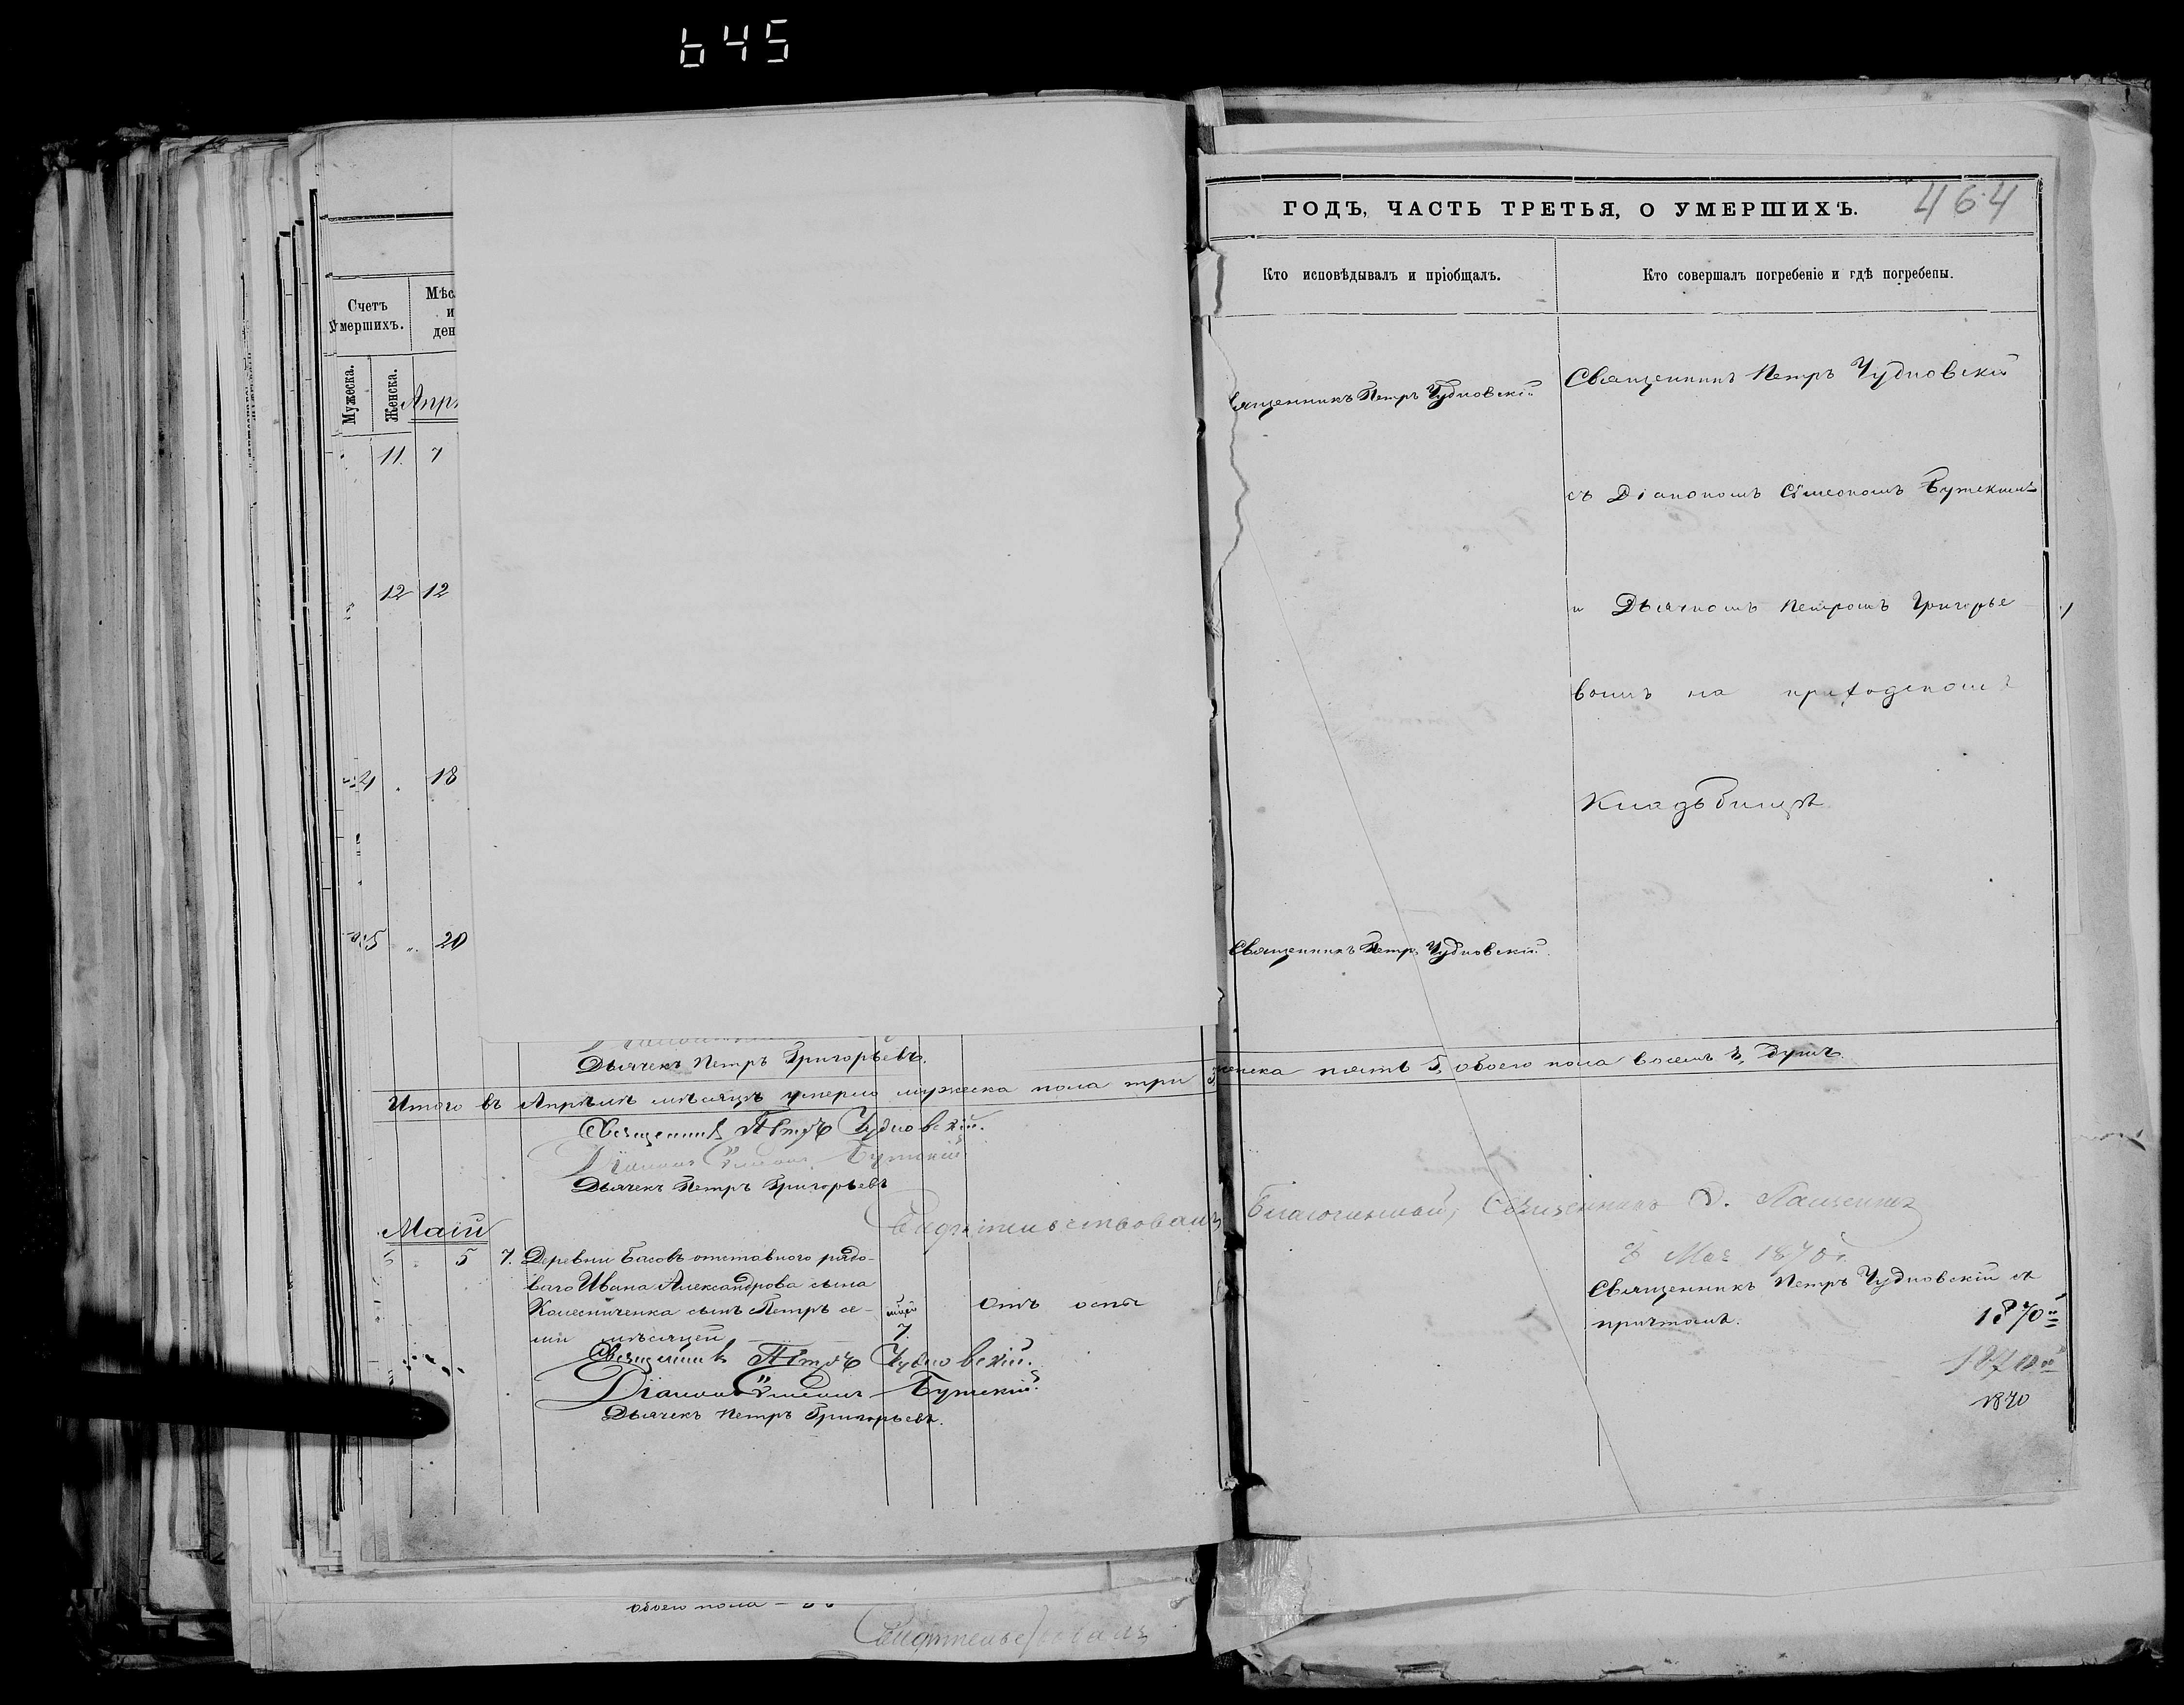 645
Счетъ
умершихъ.
Мѣс
и
ден
Мужеска.
Женска.
Апр
11. 7
12 12
4 18
5 20
Дьячекъ Петръ Григорьевъ.
Итого въ Апрѣлѣ мѣсяцѣ умерло мужеска пола три 3,
Священникъ Петръ Чудновскій.
Діаконъ Сѵмеонъ Бутскій
Дьячекъ Петръ Григорьевъ
Свидѣтельствовалъ
Маій
5 7. Деревни Басовъ отставного рядо-
ваго Ивана Александрова сына
Колесниченка сынъ Петръ се-
ми мѣсяцей 7. Отъ оспы
Священникъ Петръ Чудновскій.
Діаконъ Сѵмеонъ Бутскій.
Дьячекъ Петръ Григорьевъ.
обоего пола –
Свидѣтельствовалъ
464
ГОДЪ, ЧАСТЬ ТРЕТЬЯ, О УМЕРШИХЪ.
Кто исповѣдывалъ и пріобщалъ.
Кто совершалъ погребеніе и гдѣ погребены.
вященникъ Петръ Чудновскій
Священникъ Петръ Чудновскій
съ Діакономъ Сѵмеономъ Бутскимъ
и Дьячкомъ Петромъ Григорье
вымъ на приходскомъ
Кладбищѣ
Священникъ Петръ Чудновскій.
женска пять 5, обоего пола восемь 8, душъ.
Благочинный, Священникъ
Мая 1870 г.
Священникъ Петръ Чудновскій съ
причтомъ.
1870
1870
1870